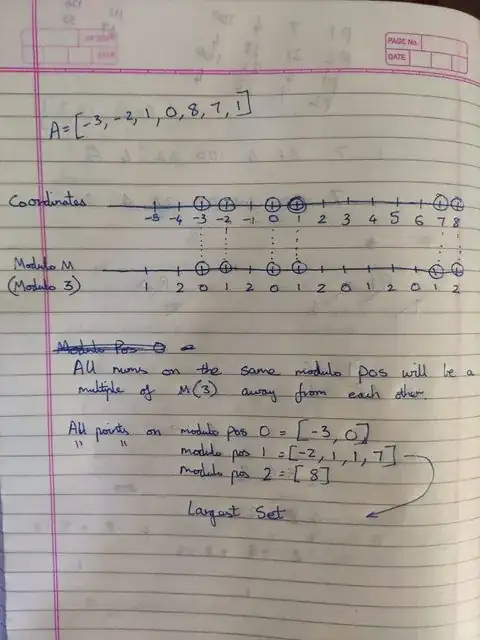 PAGE No.
DATE
A = [-3, -2, 1, 0, 8, 7, 1]
Coordinates
-5 -4 -3 -2 -1 0 1 2 3 4 5 6 7 8
Modulo M
(Modulo 3)
1 2 0 1 2 0 1 2 0 1 2 0 1 2
Modulo Pos 0 =
All nums on the same modulo pos will be a
multiple of M(3) away from each other.
All points on modulo pos 0 = [-3, 0]
" " " modulo pos 1 = [-2, 1, 1, 7]
modulo pos 2 = [8]
Largest Set